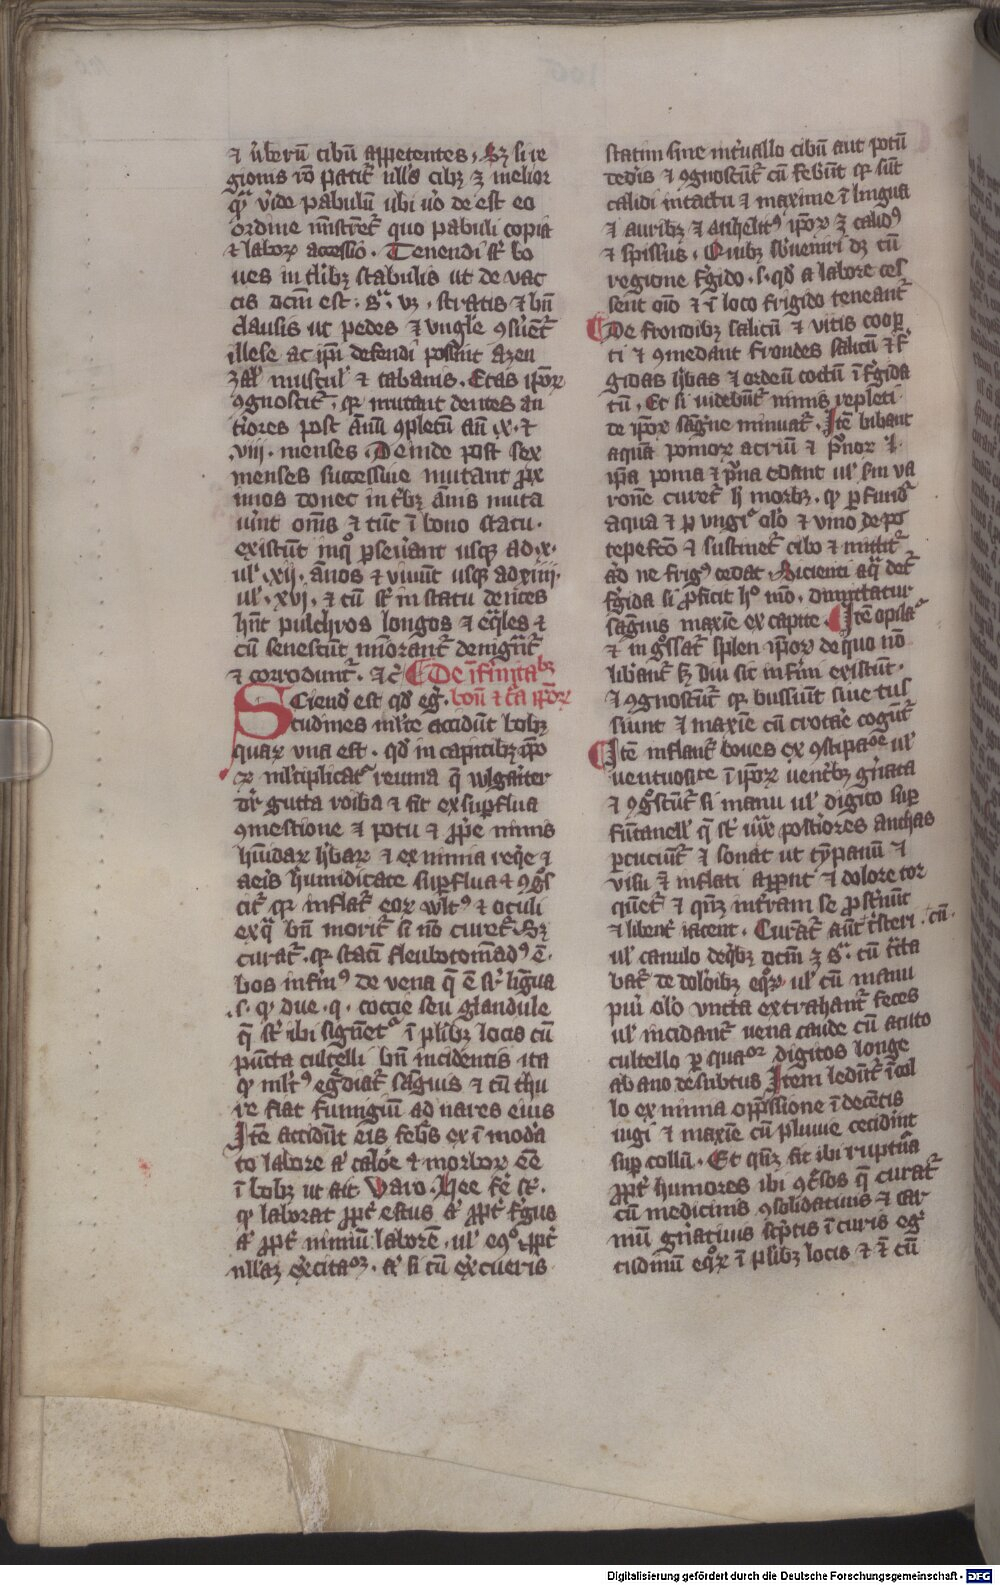 ⁊ ub̾erū cibū appetentes. Sꝫ si re
gionis rō patit᷑ ull's cibꝫ ꝫ melior
qᷓ vide pabulū ubi ūo deest eo
ordine ministret᷑ quo pabuli copia
⁊ laboꝝ accessio. Tenendi st̄ bo
ues in tl̄ibꝫ stabulis ut de vac
cis dcm̄ est. sͣ. vꝫ. stratis ⁊ bn̄
clausis ut pedes ⁊ vngle ꝯsuēt᷑
illese ac ip̄i defendi possint a
muscul' ⁊ tabanis. Etas ip̄oꝝ
ꝯgnoscit᷑, qꝛ mutant dentes an
tiores post annū ꝯpletū ⁊
.viii. menses. Deinde post sex
menses successiue mutant ꝓx
imos donec in tribꝫ ānis muta
uīnt om̄s ⁊ tūc ī bono statu.
existūt inqͦ ꝑseuāant usqꝫ ad .x.
ul' .xii. ānos ⁊ viuūt usqꝫ ad xiiii.
ul' .xvi. ⁊ cū st̄ in statu dentes
hn̄t pulchros longos ⁊ eq̄les ⁊
cū senescūt minorant᷑ denigrāt᷑
⁊ corrodunt᷑. ⁊c̄ De īfirmitabꝫ
Sciend̾ est qd̾ eg̾. boū ⁊ cͣa ip̄oꝝ
tudines ml̄te accidūt bobꝫ
quaꝝ vna est. qd̾ in capitibꝫ ip̄o
ꝝ ml̄tiplicat᷑ reuma q̄ wlgarit̾er
dr̄ gutta roiba ⁊ fit ex suꝑflua
ꝯmestione ⁊ potu ⁊ ꝓpe nimis
hūidaꝝ h̾baꝝ ⁊ ex nimia reqͥe ⁊
aeris humiditate suꝑflua ⁊ ꝯgͦs
cit᷑ qꝛ inflat᷑ eoꝝ wltꝰ ⁊ oculi
ex qᷓ bn̄ morit᷑ si nō curet᷑. Sꝫ
curat᷑. qꝛ statī fleubotomādꝰ ē.
bos infirmꝰ de vena q̄ ē sͣ lingua
.s. qꝛ due. q. coccie seu glandule
q̄ st̄ ibi ī pl̄ibꝫ locis cū
pūcta cultelli bn̄ incidentis ita
qꝛ ml̄tꝰ egrediat᷑ sāguis ⁊ cū thu
re fiat fumigiū ad nares eius
Itē accidūt eis febrs ex ī modͣa
to labore aͭ calore ⁊ morboꝝ ēē
ī bobꝫ ut ait Varo. Hee fe st̄.
qꝛ laborat ꝓpt̾ estus aͭ ꝓpt̾ frigus
aͭ ꝓpt̾ nimiū laborē. ul' ꝓpt̾
nll'aꝫ ex̾citaōꝫ. aͭ si cū ex̾cueris
statim sine int̾uallo cibū aut potū
ded̾is ⁊ ꝯgnoscūt᷑ cū feb̾int qꝛ sūt
calidi in tactu ⁊ maxime ī lingua
⁊ auribꝫ ⁊ anhelitꝰ ip̄oꝝ ꝫ calidꝰ
⁊ spissus. Quibꝫ sb̾ueniri dꝫ cū
regione frigido .s. qd̾ a labore ces
sent oīo ⁊ ī loco frigido teneant᷑
De frondibꝫ salicū ⁊ vitis cooꝑ
ti ⁊ ꝯmedant frondes salicū ⁊ f̾
gidas h̾bas ⁊ ordeū coctū ī frigida
tū. Et si videbūt᷑ nimis repleti
de ip̄oꝝ sagͥne minuat᷑. Itē bibant
aquā pomoꝝ acriū ⁊ pͥnoꝝ ul'.
ip̄a poma ⁊ pͥna edant ul' sm̄ va
ronē curet᷑ h̾ morbꝫ. qꝛ ꝑfundͥ
aqua ⁊ ꝑungͥ oleo ⁊ vino de po
tepefcō ⁊ sustinet᷑ cibo ⁊ mittit᷑
ad ne frigꝰ cedat. Sicienti aqͣ det᷑
frigida si ꝓficit hͦ mō. dimittatur
sagͥnis maxīe ex capite. Itē opilat᷑
⁊ in gͦssat᷑ splen ip̄oꝝ de quo nō
libant᷑ sꝫ diu sic infirmi existūt.
⁊ ꝯgnoscūt᷑ qꝛ bussiunt siue tus
siunt ⁊ maxīe cū crotare cogūt᷑
Itē inflant᷑ boues ex ꝯstipatoe ul'
ventuositate ī ip̄oꝝ uent̾bꝫ gn̾ata
⁊ ꝯgͦscūt᷑ si manu ul' digito suꝑ
funtanell' q̄ st̄ iuxᷓ post̾iores anchas
ꝑcuciūt᷑ ⁊ sonat ut tympanū ⁊
visu ⁊ inflati appent ⁊ dolore tor
quēt᷑ ⁊ qn̄ꝫ in t̾ram se ꝓst̾nūt
⁊ libent̾ iacent. Curant᷑ aūt c̾isteri .cū.
ul' canulo de qͥbꝫ dcm̄ ꝫ sͣ. cū
bat᷑ de doloribꝫ eqͦꝝ. ul' cū manu
puri oleo vncta extrahant᷑ feces
ul' incidant᷑ uena caude cū acuto
cultello ꝑ quatuor digitos longe
ab ano desubtus Item ledūt᷑ ī col
lo ex nimia oppͥssione ī decentis
iugi ⁊ maxīe cū pluuie cecidint
suꝑ collū. Et qn̄ꝫ fit ibi ruptura
ꝓpt̾ humores ibi ꝯcursos q̄ curat᷑
cū medicinis ꝯsolidatiuis ⁊ car
niū gn̾atiuis sc̾ptis ī curis egͥ
tudinū eqͦꝝ ī plīibꝫ locis ⁊ ⁊ cū
Digitalisierung gefördert durch die Deutsche Forschungsgemeinschaft - DFG